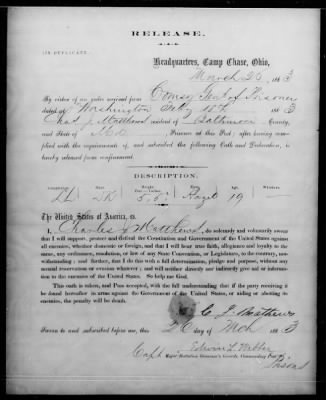 RELEASE.
[IN DUPLICATE.]
Headquarters, Camp Chase, Ohio,
March 20, 1863
By virtue of an order received from Comsy Genl of Prisoners
dated at Washington 18th 1863
Chas J. Matthews resident of Baltimore County,
and State of Md, Prisoner at this Post; after having com-
plied with the requirements of, and intended the following Oath and Declaration, is
hereby released from confinement.
DESCRIPTION:
Age,
5.8
19
The United States of America, ss.
I, Charles J Matthews, do solemnly and voluntarily swear
that I will support, protect and defend the Constitution and Government of the United States against
all enemies, whether domestic or foreign, and that I will bear true faith, allegiance and loyalty to the
same, any ordinance, resolution, or law of any State Convention, or Legislature, to the contrary, not-
withstanding; and further, that I do this with a full determination, pledge and purpose, without any
mental reservation or evasion whatever; and will neither directly nor indirectly give aid or information
to the enemies of the United States. So help me God.
This oath is taken, and Pass accepted, with the full understanding that if the party receiving it
be found hereafter in arms against the Government of the United States, or aiding or abetting its
enemies, the penalty will be death.
C. J. Mathews
Sworn to and subscribed before me, this 20 day of Mch 1863
Edwin L. Webber
Capt Major Battalion Governor's Guards, Commanding Post of
Prisons